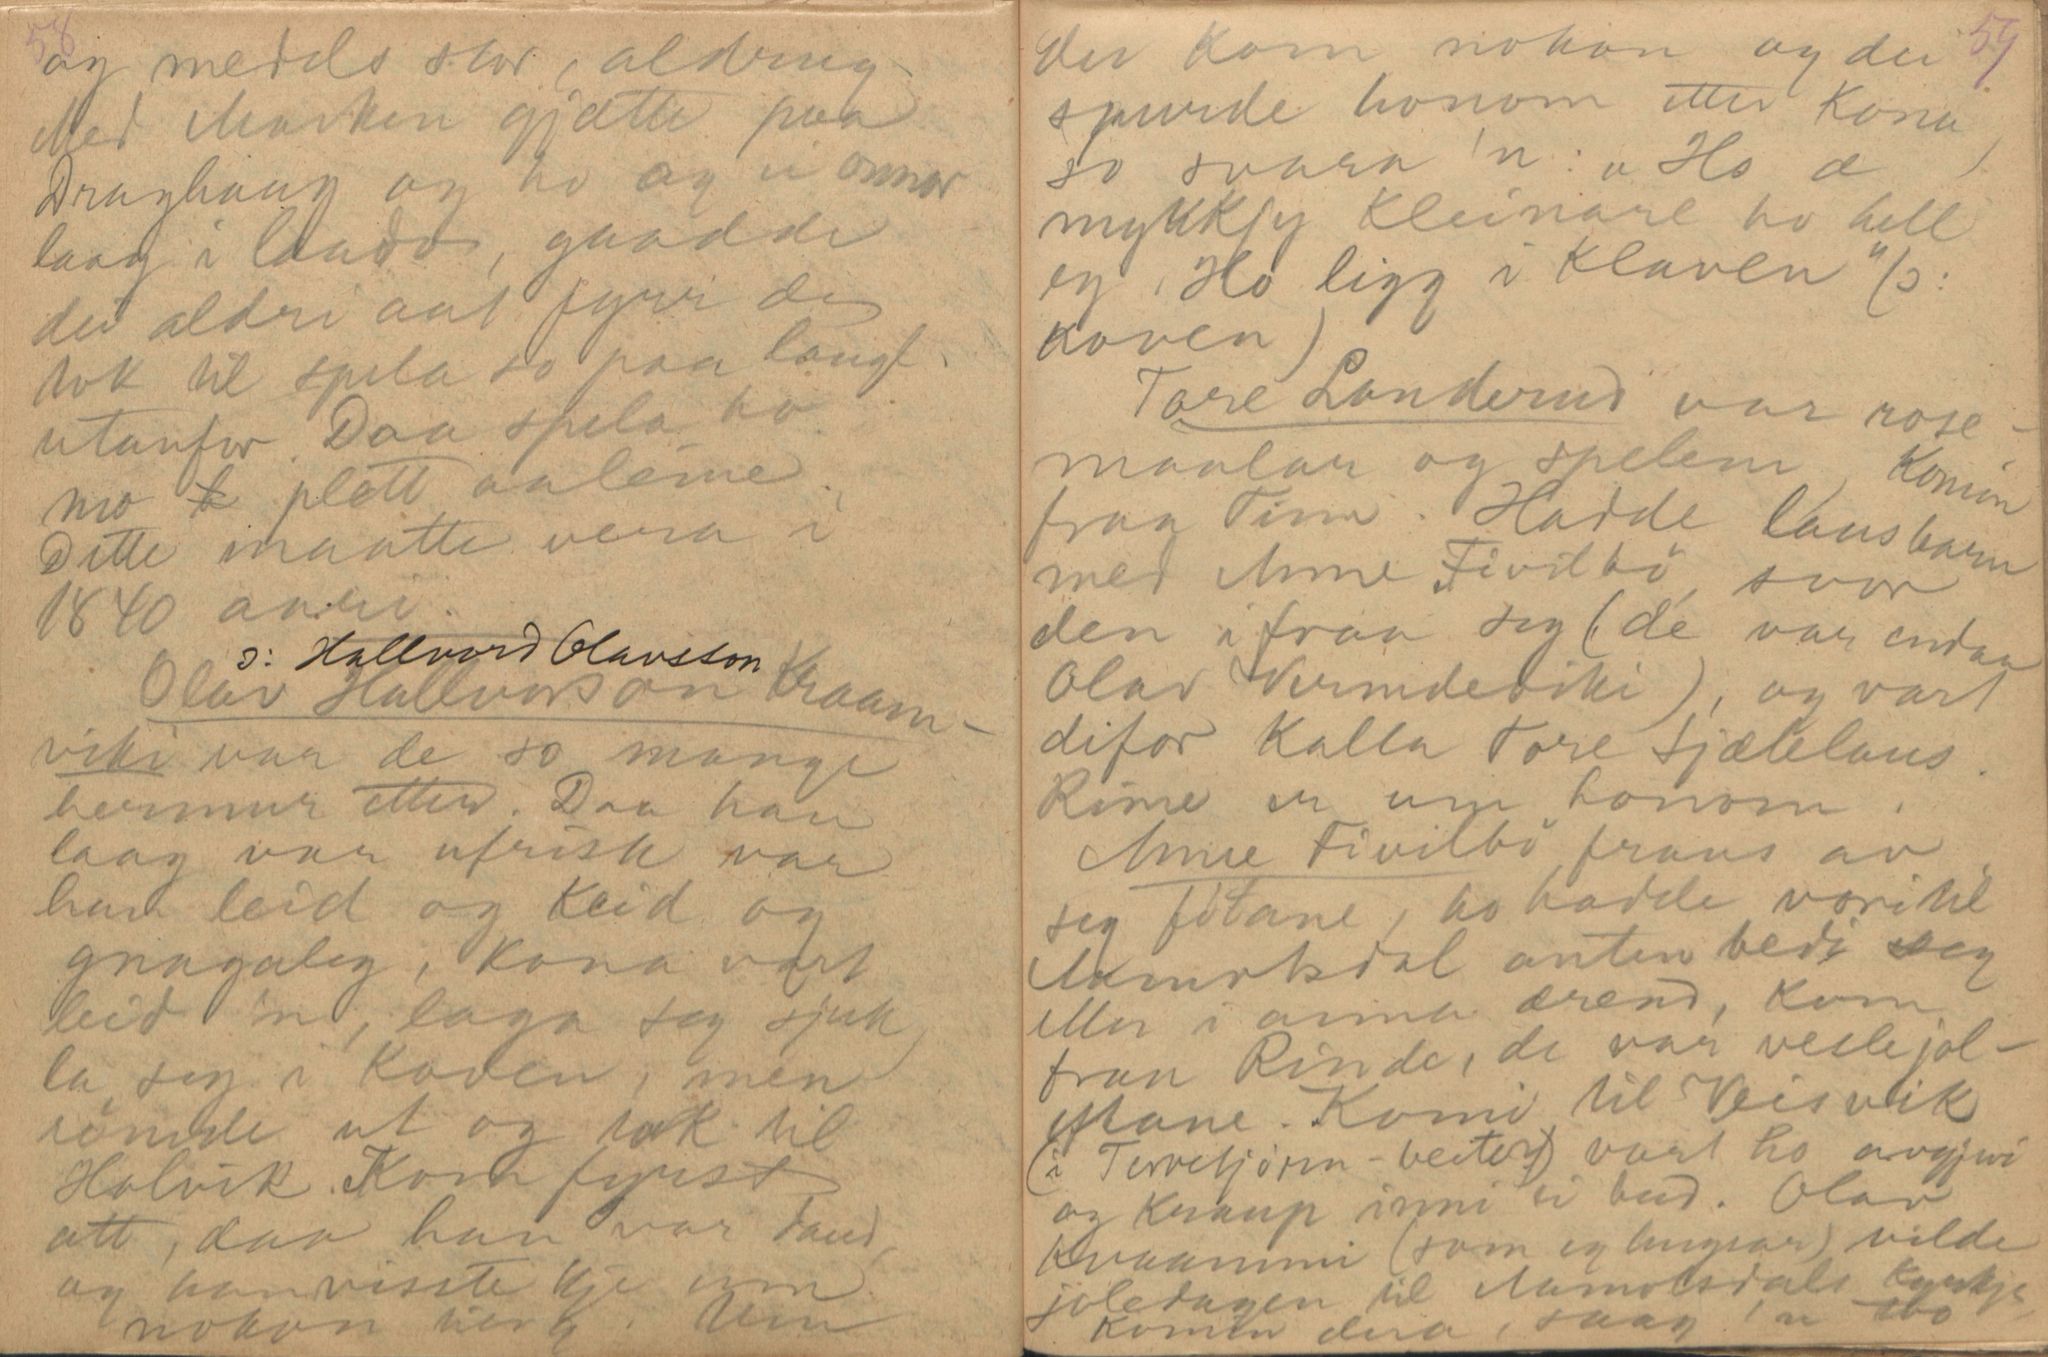 58
og medels stor, aldrug.
Med Marken gjætte paa
Draghaug og ho og ei onnor
laag i laado, gaadde
dei aldri aat fyrr dei
tok til spela so paa langt
utanfor. Daa spela ho
mo plett aaleine.
Dette maatte vera i
1840 aari.
ɔ: Hallvord Olavsson
Olav Hallvorson Kraam-
viki var de so mange
hermur etter. Daa han
laag var ufrisk var
han leid og keid og
gnagaleg, kona vart
leid 'n, laga seg sjuk
la seg i koven, men
römde ut og tok til
Holvik. Kom fyrst
att, daa han var daud,
og han visste kje um
nokon ting. Um
59
dei kom nokon og dei
spurde honom etter kona,
so svara 'n: "Ho æ
mykkjy kleinare ho hell
eg, Ho ligg i klaven" (ɔ:
koven)
Tore Landerud var rose-
maalar og spelem, komin
fraa Tinn. Hadde lausbarn
med Anne Tivilbö, svor
den ifraa seg (de var endaa
Olav Vermdeviki), og vart
difor kalla Tore Sjælelaus.
Rime er um honom.
Anne Tivilbö fraus av
seg fötane, ho hadde vori til
Aamotsdal anten bedi seg
eller i anna ærend, kom
fraa Rinde, de var veslejol-
eftane. Komi til Veisvik
(i Tervetjørn-beiter) vart ho avgjevi
og kraup inni ei bud. Olav
Kvaammi (som eg hugsar) vilde
joledagen til Aamotsdals kyrkje,
komin dera, saag 'n tvo